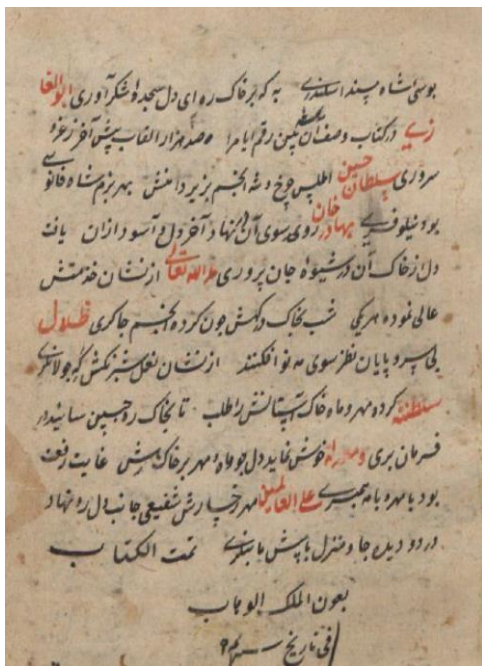 بوسئ شاه پسند اسکندری به که بر خاک ره ای دل سجده شکر آوری ابو الغا
زی در کتاب وصف آن بین رقم ایام را صد هزار القاب پیش آخر ز غزو
سروری سلطان حسین اطلس چرخ دشه انجم بزیر دامنش بهر بزم شاه فانوسی
بود نیلوفری بهادر خان روی سوی آن نهاد آخر دل و آسود ازان یافت
دل ز خاک آن در شیوه جان پروری خلد الله تعالی از نشان خدمتش
عالی نموده هر یکی شب بخاک درکهش چون کرده انجم چاکری ظلال
بی سر و پایان نظر سوی مه نو افکنند از نشان نعل شبرنکش که جولانکری
سلطنته کرده مهر و ماه خاک آستانش را طلب تا بخاک ره جبین سایند در
فرمان بری و معدلته خوش نماید دل چو ماه و مهر بر خاک رهش غایت رفعت
بود با مهر و با مه همسری علی العالمین مهر رخسارش شفیعی جانب دل رو نهاد
در دو دیده جا و منزل پایش تا بنکری تمت الکتاب
بعون الملک الوهاب
فی تاریخ سنه